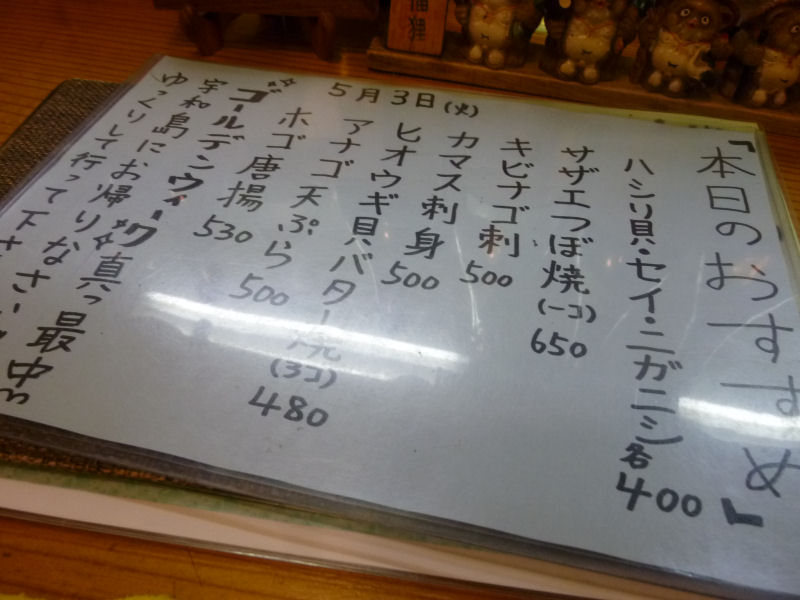 『本日のおすすめ』
ハシリ貝・セイ・ニガニシ 各400
サザエつぼ焼(一コ) 650
キビナゴ刺 500
カマス刺身 500
ヒオウギ貝バター焼(3コ) 480
アナゴ天ぷら 500
ホゴ唐揚 530
5月3日(火)
ゴールデンウィーク真っ最中
宇和島にお帰りなさい
ゆっくりして行って下さい